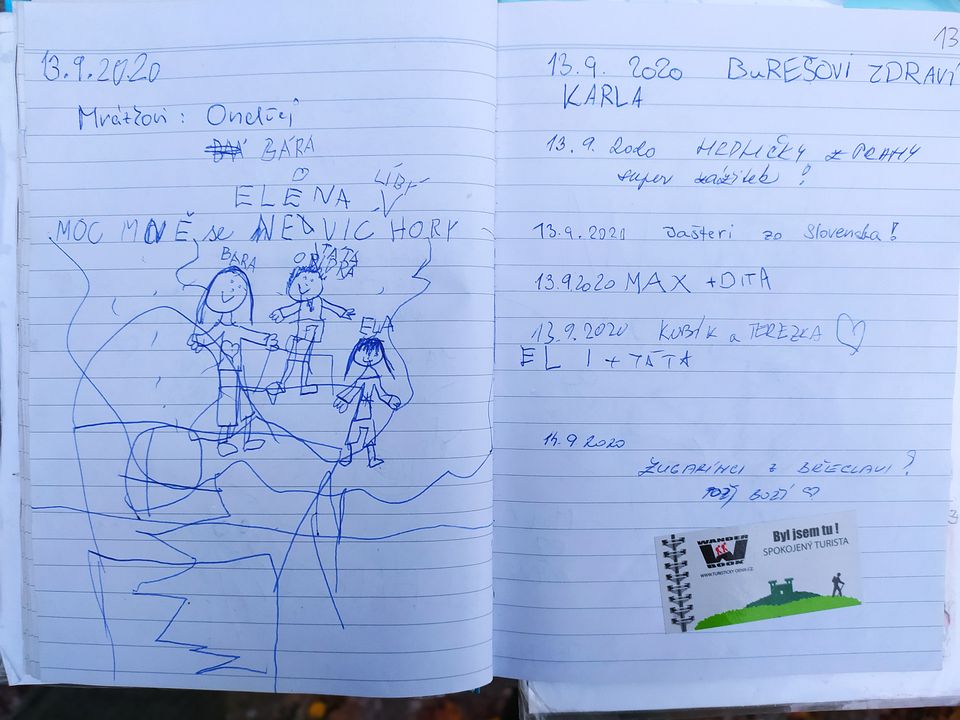 13.9.2020
Mrázkovi: Ondřej
BÁRA
ELENA LÍBÍ
MOC MNĚ se NEJVIC HORY
BÁRA
TÁTA
ELA
13
13.9. 2020 BUREŠOVI ZDRAVÍ
KARLA
13.9. 2020 HRDLIČKY z PRAHY
super zážitek!
13.9.2020 Jašteri zo Slovenska!
13.9.2020 MAX + DITA
13.9.2020 KUBÍK a TEREZKA
ELI + TÁTA
14.9 2020
ŽUGARINCI z BŘECLAVI!
BOŽÍ
WANDER
KK
BOOK
WWW.TURISTICKY-DENIK.CZ
Byl jsem tu!
SPOKOJENÝ TURISTA